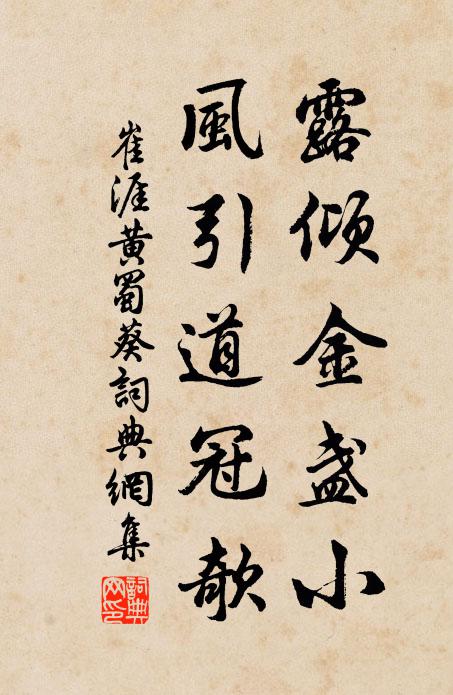 露傾金盞小
風引道冠欹
崔涯黄蜀葵詞典網集
詞典